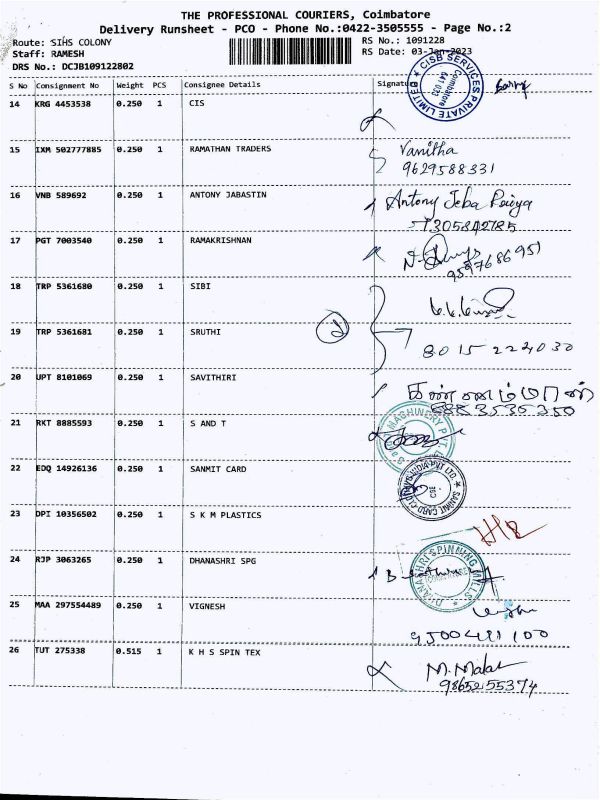 THE PROFESSIONAL COURIERS, Coimbatore
Delivery Runsheet - PCO - Phone No.:0422-3505555 - Page No.:2
Route: SIHS COLONY
RS No.: 1091228
Staff: RAMESH
RS Date: 03-Jan-2023
DRS No.: DCJB109122802
CISB SERVICES PRIVATE LIMITED
Coimbatore
641 033
S No Consignment No Weight PCS Consignee Details Signature
14 KRG 4453538 0.250 1 CIS
15 IXM 502777885 0.250 1 RAMATHAN TRADERS Vanitha
9629588331
16 VNB 589692 0.250 1 ANTONY JABASTIN Antony Jeba
17 PGT 7003540 0.250 1 RAMAKRISHNAN
9597686951
18 TRP 5361680 0.250 1 SIBI
2
19 TRP 5361681 0.250 1 SRUTHI
8015224030
20 UPT 8101069 0.250 1 SAVITHIRI
21 RKT 8885593 0.250 1 S AND T
MACHINERY PVT.
22 EDQ 14926136 0.250 1 SANMIT CARD
23 DPI 10356502 0.250 1 S K M PLASTICS
24 RJP 3063265 0.250 1 DHANASHRI SPG
DHANASHRI SPINNING MILLS
25 MAA 297554489 0.250 1 VIGNESH
26 TUT 275338 0.515 1 K H S SPIN TEX M. Malar
9865255374